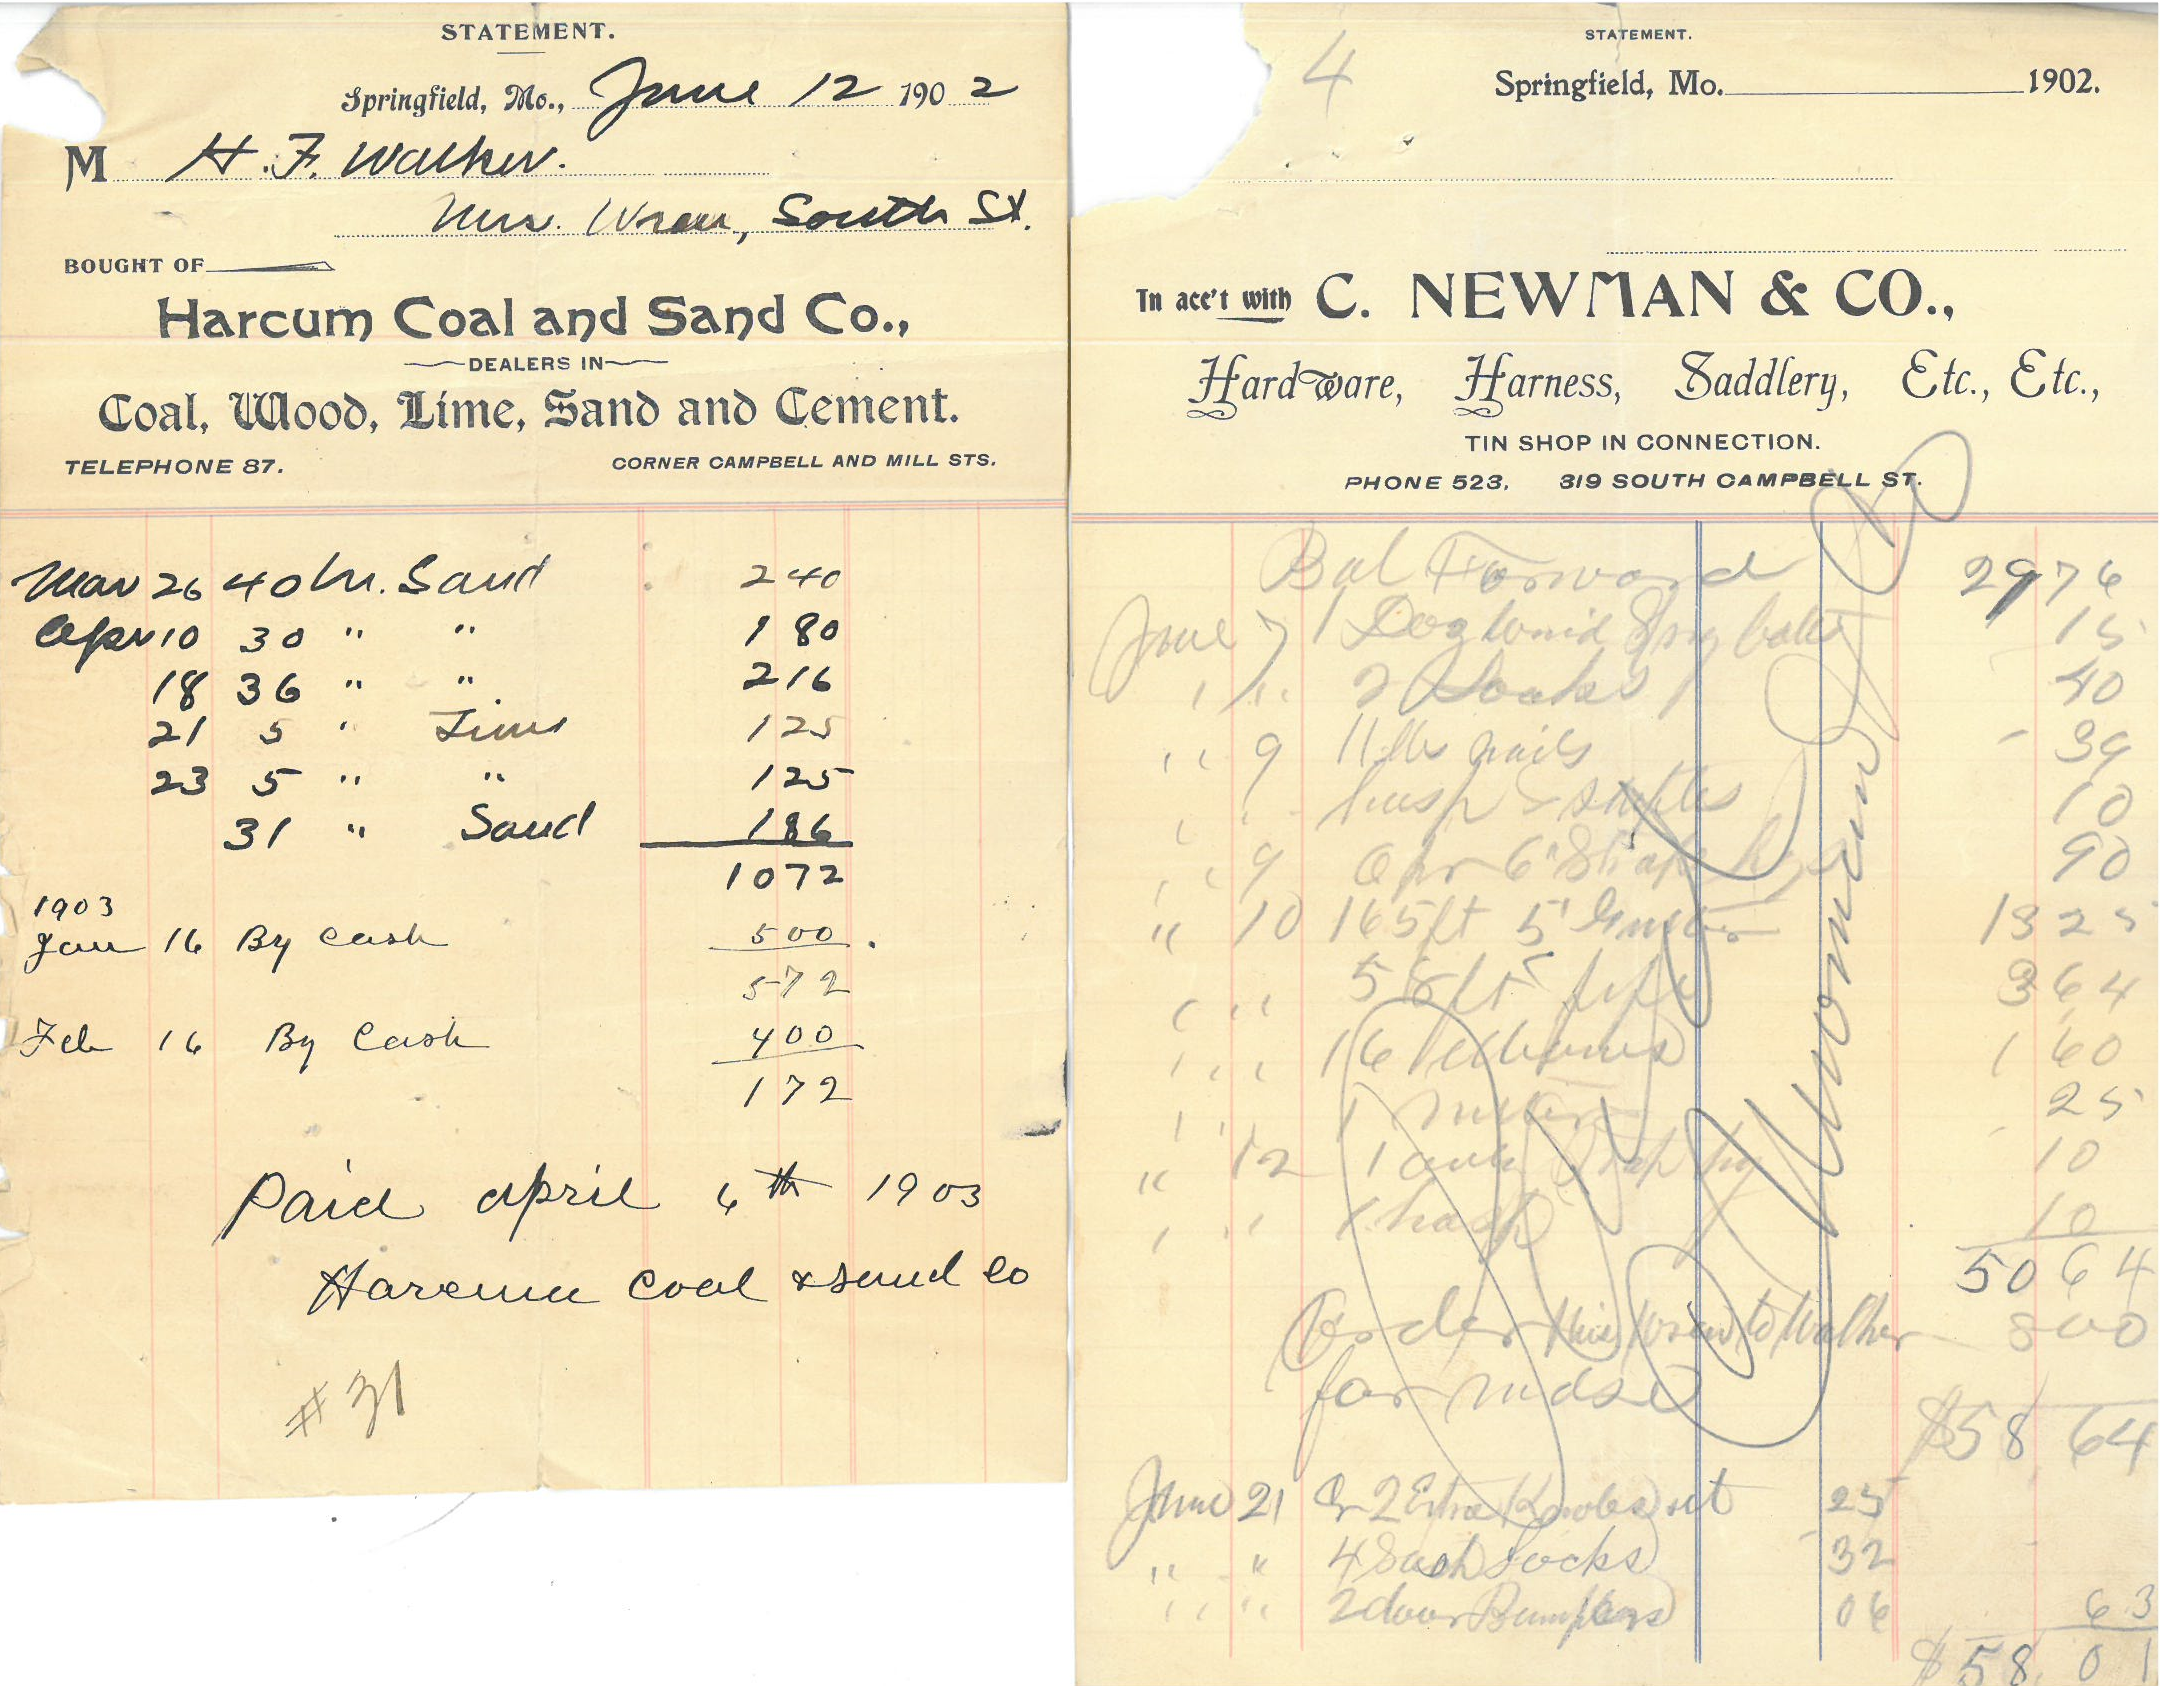 STATEMENT.
Springfield, Mo., June 12 1902
M H. F. Walker.
Mrs. Wren, South St.
BOUGHT OF
Harcum Coal and Sand Co.,
DEALERS IN
Coal, Wood, Lime, Sand and Cement.
TELEPHONE 87. CORNER CAMPBELL AND MILL STS.
Mar 26 40 bu. Sand 240
Apr 10 30 " " 1 80
18 36 " " 216
21 5 " Lime 125
23 5 " " 125
31 " Sand 186
1072
1903
Jan 16 By Cash 500
572
Feb 16 By Cash 400
172
Paid April 6th 1903
Harcum Coal & Sand Co
#31
4
STATEMENT.
Springfield, Mo. 1902.
In acc't with C. NEWMAN & CO.,
Hardware, Harness, Saddlery, Etc., Etc.,
TIN SHOP IN CONNECTION.
PHONE 523. 319 SOUTH CAMPBELL ST.
Bal Forward 2976
June 7 1 Dog 15
" " 2 Locks 40
" 9 11 lbs nails 39
" " hasp & staples 10
" 9 6" Strap 90
" 10 165ft 5" Gutter 1325
" " 58ft pipe 364
" " 16 Elbows 1 60
" " 1 25
" 12 1 10
" " 1 hasp 10
50 64
Order Mrs Wren to Walker 800
for mdse
$58 64
June 21 Cr 2 Extra Knobs set 25
" " 4 Sash Locks 32
" " 2 door Bumpers 06 63
$58 01